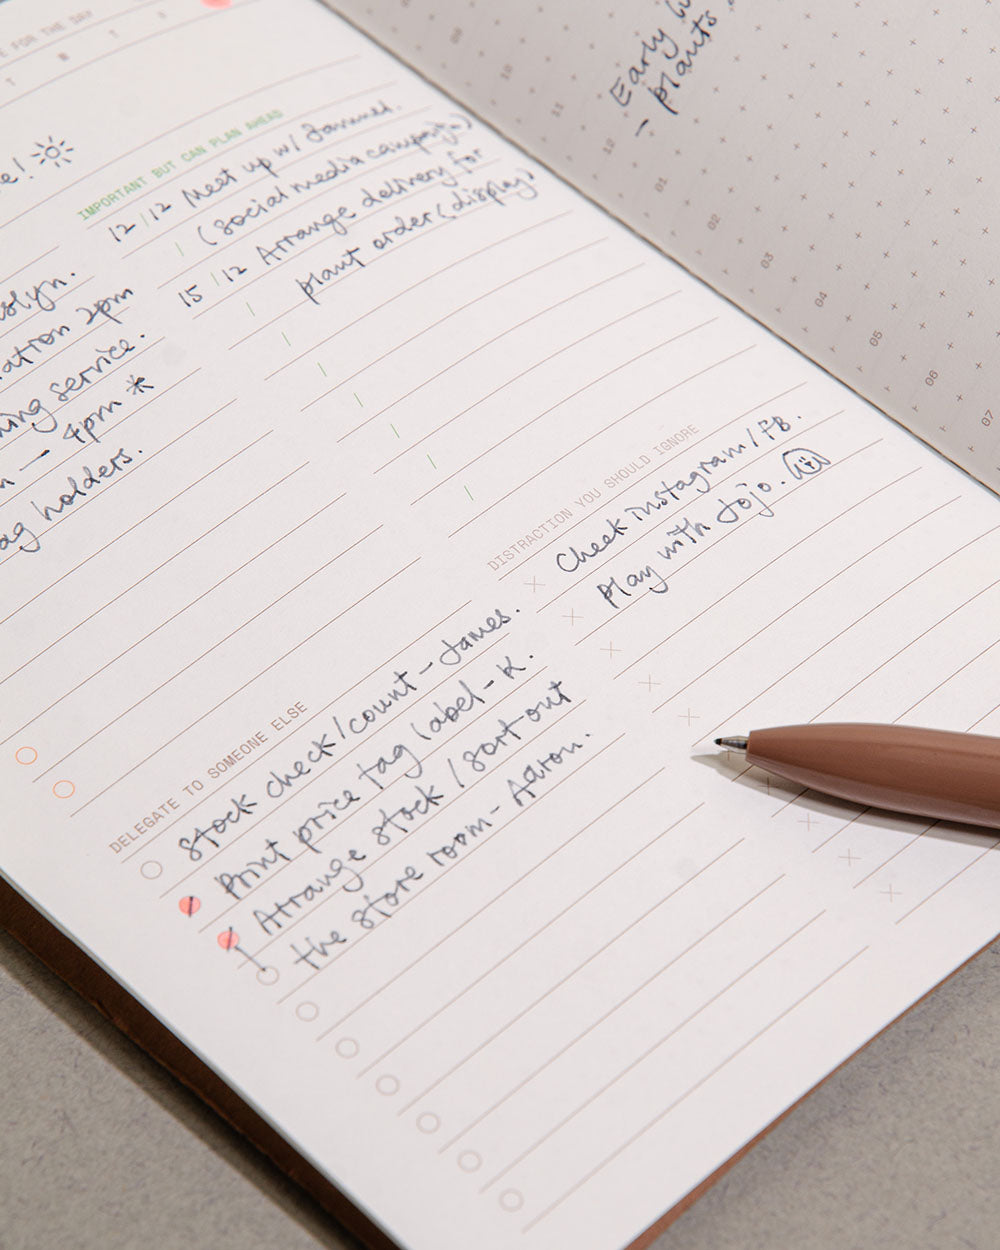 FOR THE DAY
IMPORTANT BUT CAN PLAN AHEAD
12/12 Meet up w/
(social media campaign)
15/12 Arrange delivery for
plant order (display)
2pm
service.
- 4pm *
holders.
DISTRACTION YOU SHOULD IGNORE
Check instagram/FB.
Play with Jojo.
DELEGATE TO SOMEONE ELSE
Stock check/count - James.
Print price tag label - K.
Arrange stock/sort out
the store room - Aaron.
Early
- plants
09
10
11
12
01
02
03
04
05
06
07